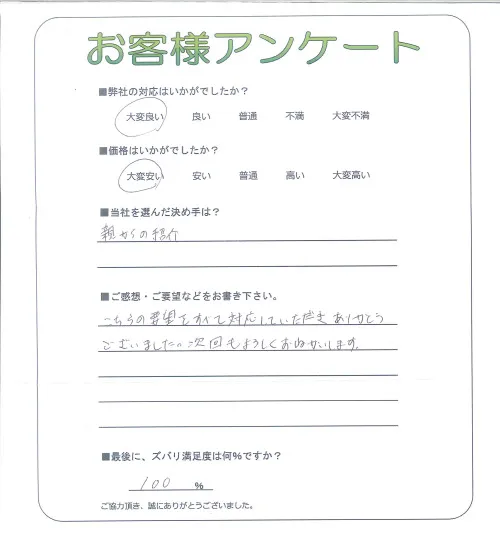 お客様アンケート
■弊社の対応はいかがでしたか？
大変良い 良い 普通 不満 大変不満
■価格はいかがでしたか？
大変安い 安い 普通 高い 大変高い
■当社を選んだ決め手は？
親からの紹介
■ご感想・ご要望などをお書き下さい。
こちらの要望をすべて対応していただきありがとう
ございました。次回もよろしくおねがいします。
■最後に、ズバリ満足度は何%ですか？
100 %
ご協力頂き、誠にありがとうございました。